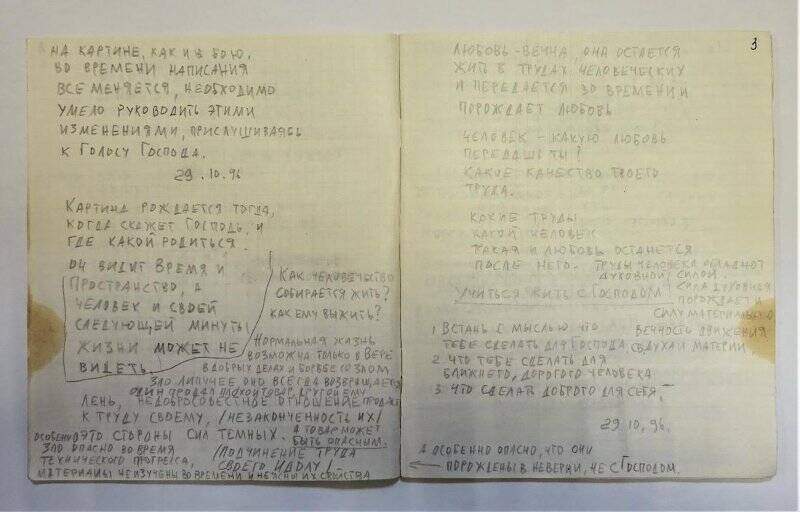 НА КАРТИНЕ, КАК И В БОЮ,
ВО ВРЕМЕНИ НАПИСАНИЯ
ВСЕ МЕНЯЕТСЯ, НЕОБХОДИМО
УМЕЛО РУКОВОДИТЬ ЭТИМИ
ИЗМЕНЕНИЯМИ, ПРИСЛУШИВАЯСЬ
К ГОЛОСУ ГОСПОДА.
29.10.96
КАРТИНА РОЖДАЕТСЯ ТОГДА,
КОГДА СКАЖЕТ ГОСПОДЬ, И
ГДЕ КАКОЙ РОДИТЬСЯ.
ОН ВИДИТ ВРЕМЯ И
ПРОСТРАНСТВО, А
ЧЕЛОВЕК И СВОЕЙ
СЛЕДУЮЩЕЙ МИНУТЫ
ЖИЗНИ МОЖЕТ НЕ
ВИДЕТЬ.
КАК ЧЕЛОВЕЧЕСТВО
СОБИРАЕТСЯ ЖИТЬ?
КАК ЕМУ ВЫЖИТЬ?
НОРМАЛЬНАЯ ЖИЗНЬ
ВОЗМОЖНА ТОЛЬКО В ВЕРЕ
В ДОБРЫХ ДЕЛАХ И БОРЬБЕ СО ЗЛОМ
ЗЛО ЛИПУЧЕЕ ОНО ВСЕГДА ВОЗВРАЩАЕТСЯ
ОДИН ПРОДАЛ ПЛОХОЙ ТОВАР, ДРУГОЙ ЕМУ
ЛЕНЬ, НЕДОБРОСОВЕСТНОЕ ОТНОШЕНИЕ
К ТРУДУ СВОЕМУ, /НЕЗАКОНЧЕННОСТЬ ИХ/
ОСОБЕННО ЭТО СТОРОНЫ СИЛ ТЕМНЫХ.
А ТОВАР МОЖЕТ
БЫТЬ ОПАСНЫМ.
ЗЛО ОПАСНО ВО ВРЕМЯ
ТЕХНИЧЕСКОГО ПРОГРЕССА,
/ПОДЧИНЕНИЕ ТРУДА
СВОЕГО ИДОЛУ/
МАТЕРИАЛЫ НЕ ИЗУЧЕНЫ ВО ВРЕМЕНИ И НЕ ЯСНЫ ИХ СВОЙСТВА
3
ЛЮБОВЬ - ВЕЧНА, ОНА ОСТАЕТСЯ
ЖИТЬ В ТРУДАХ ЧЕЛОВЕЧЕСКИХ
И ПЕРЕДАЕТСЯ ВО ВРЕМЕНИ И
ПОРОЖДАЕТ ЛЮБОВЬ
ЧЕЛОВЕК - КАКУЮ ЛЮБОВЬ
ПЕРЕДАШЬ ТЫ?
КАКИЕ КАЧЕСТВО ТВОЕГО
ТРУДА.
КАКИЕ ТРУДЫ
КАКОЙ ЧЕЛОВЕК
ТАКАЯ И ЛЮБОВЬ ОСТАНЕТСЯ
ПОСЛЕ НЕГО. ТРУДЫ ЧЕЛОВЕКА ОБЛАДАЮТ
ДУХОВНОЙ СИЛОЙ.
СИЛА ДУХОВНАЯ
ПОРОЖДАЕТ И
СИЛУ МАТЕРИАЛЬНУЮ
УЧИТЬСЯ ЖИТЬ С ГОСПОДОМ
1 ВСТАНЬ С МЫСЛЬЮ ЧТО
ТЕБЕ СДЕЛАТЬ ДЛЯ ГОСПОДА
ВЕЧНОСТЬ ДВИЖЕНИЯ
ДУХА И МАТЕРИИ
2 ЧТО ТЕБЕ СДЕЛАТЬ ДЛЯ
БЛИЖНЕГО, ДОРОГОГО ЧЕЛОВЕКА
3 ЧТО СДЕЛАТЬ ДОБРОГО ДЛЯ СЕБЯ.
29.10.96.
А ОСОБЕННО ОПАСНО, ЧТО ОНИ
ПОРОЖДЕНЫ В НЕВЕРИИ, НЕ С ГОСПОДОМ.